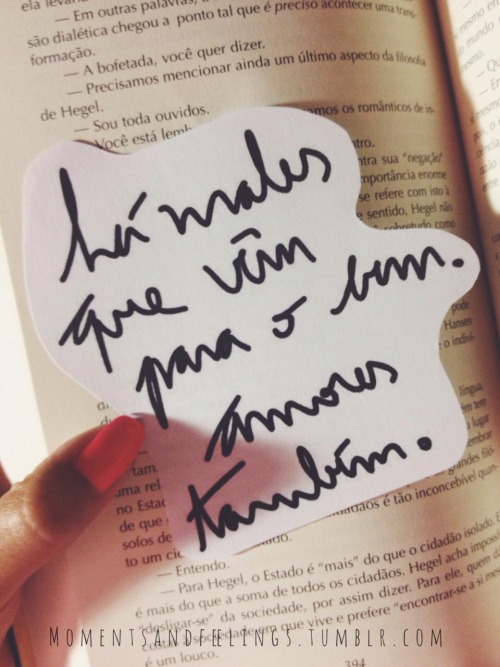 ela levan
— Em outras palavras, a
são dialética chegou a ponto tal que é preciso acontecer uma trans-
formação.
— A bofetada, você quer dizer.
— Precisamos mencionar ainda um último aspecto da filosofia
de Hegel.
— Sou toda ouvidos.
— Você está lemb
amos os românticos de
há males
que vêm
para o bem.
amores
também.
ntro.
ntra sua "negação"
mportância enorme
se refere com isto à
sentido, Hegel não
sobretudo como
pode
Hansen
e o indiví-
língua,
lugar
tam
uma rel
no Estad
de que
sofos de
to um ci
grandes filó-
dadãos é tão inconcebível quan-
— Entendo.
— Para Hegel, o Estado é "mais" do que o cidadão isolado. E
é mais do que a soma de todos os cidadãos. Hegel acha impossí
"desligar-se" da sociedade, por assim dizer. Para ele, quem
sociedade em que vive e prefere "encontrar-se a si mes
é um louco.
394
MOMENTSANDFEELINGS.TUMBLR.COM